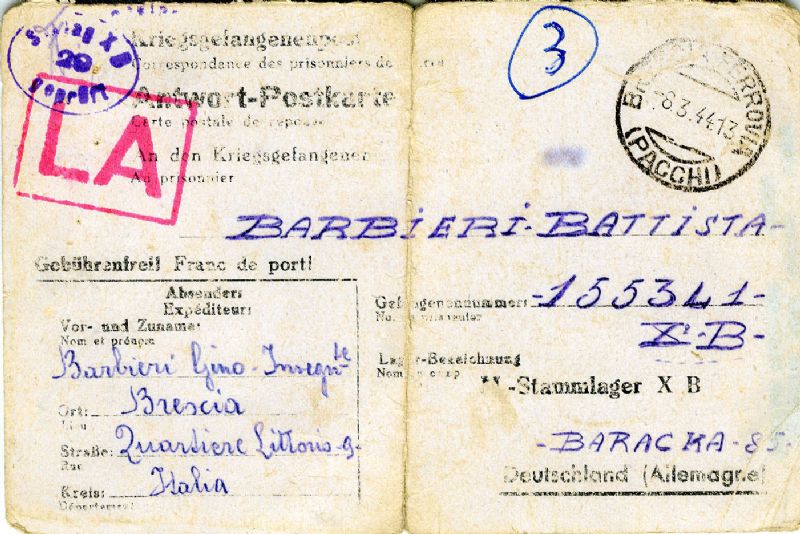 Stalag X B
29
geprüft
LA
Kriegsgefangenenpost
Correspondance des prisonniers de guerre
Antwort-Postkarte
Carte postale de réponse
An den Kriegsgefangenen
Au prisonnier
3
-8.3.44.13
(PACCHI)
BARBIERI-BATTISTA-
Gebührenfrei! Franc de port!
Absender:
Expéditeur:
Vor- und Zuname:
Nom et prénom
Barbieri Gino-Insegnte
Ort: Brescia
Lieu
Straße: Quartiere Littorio-9-
Rue
Kreis: Italia
Département
Gefangenennummer: -155341-
No. du prisonnier
X-B-
Lager-Bezeichnung
Nom du camp
M-Stammlager X B
-BARACKA-85-
Deutschland (Allemagne)